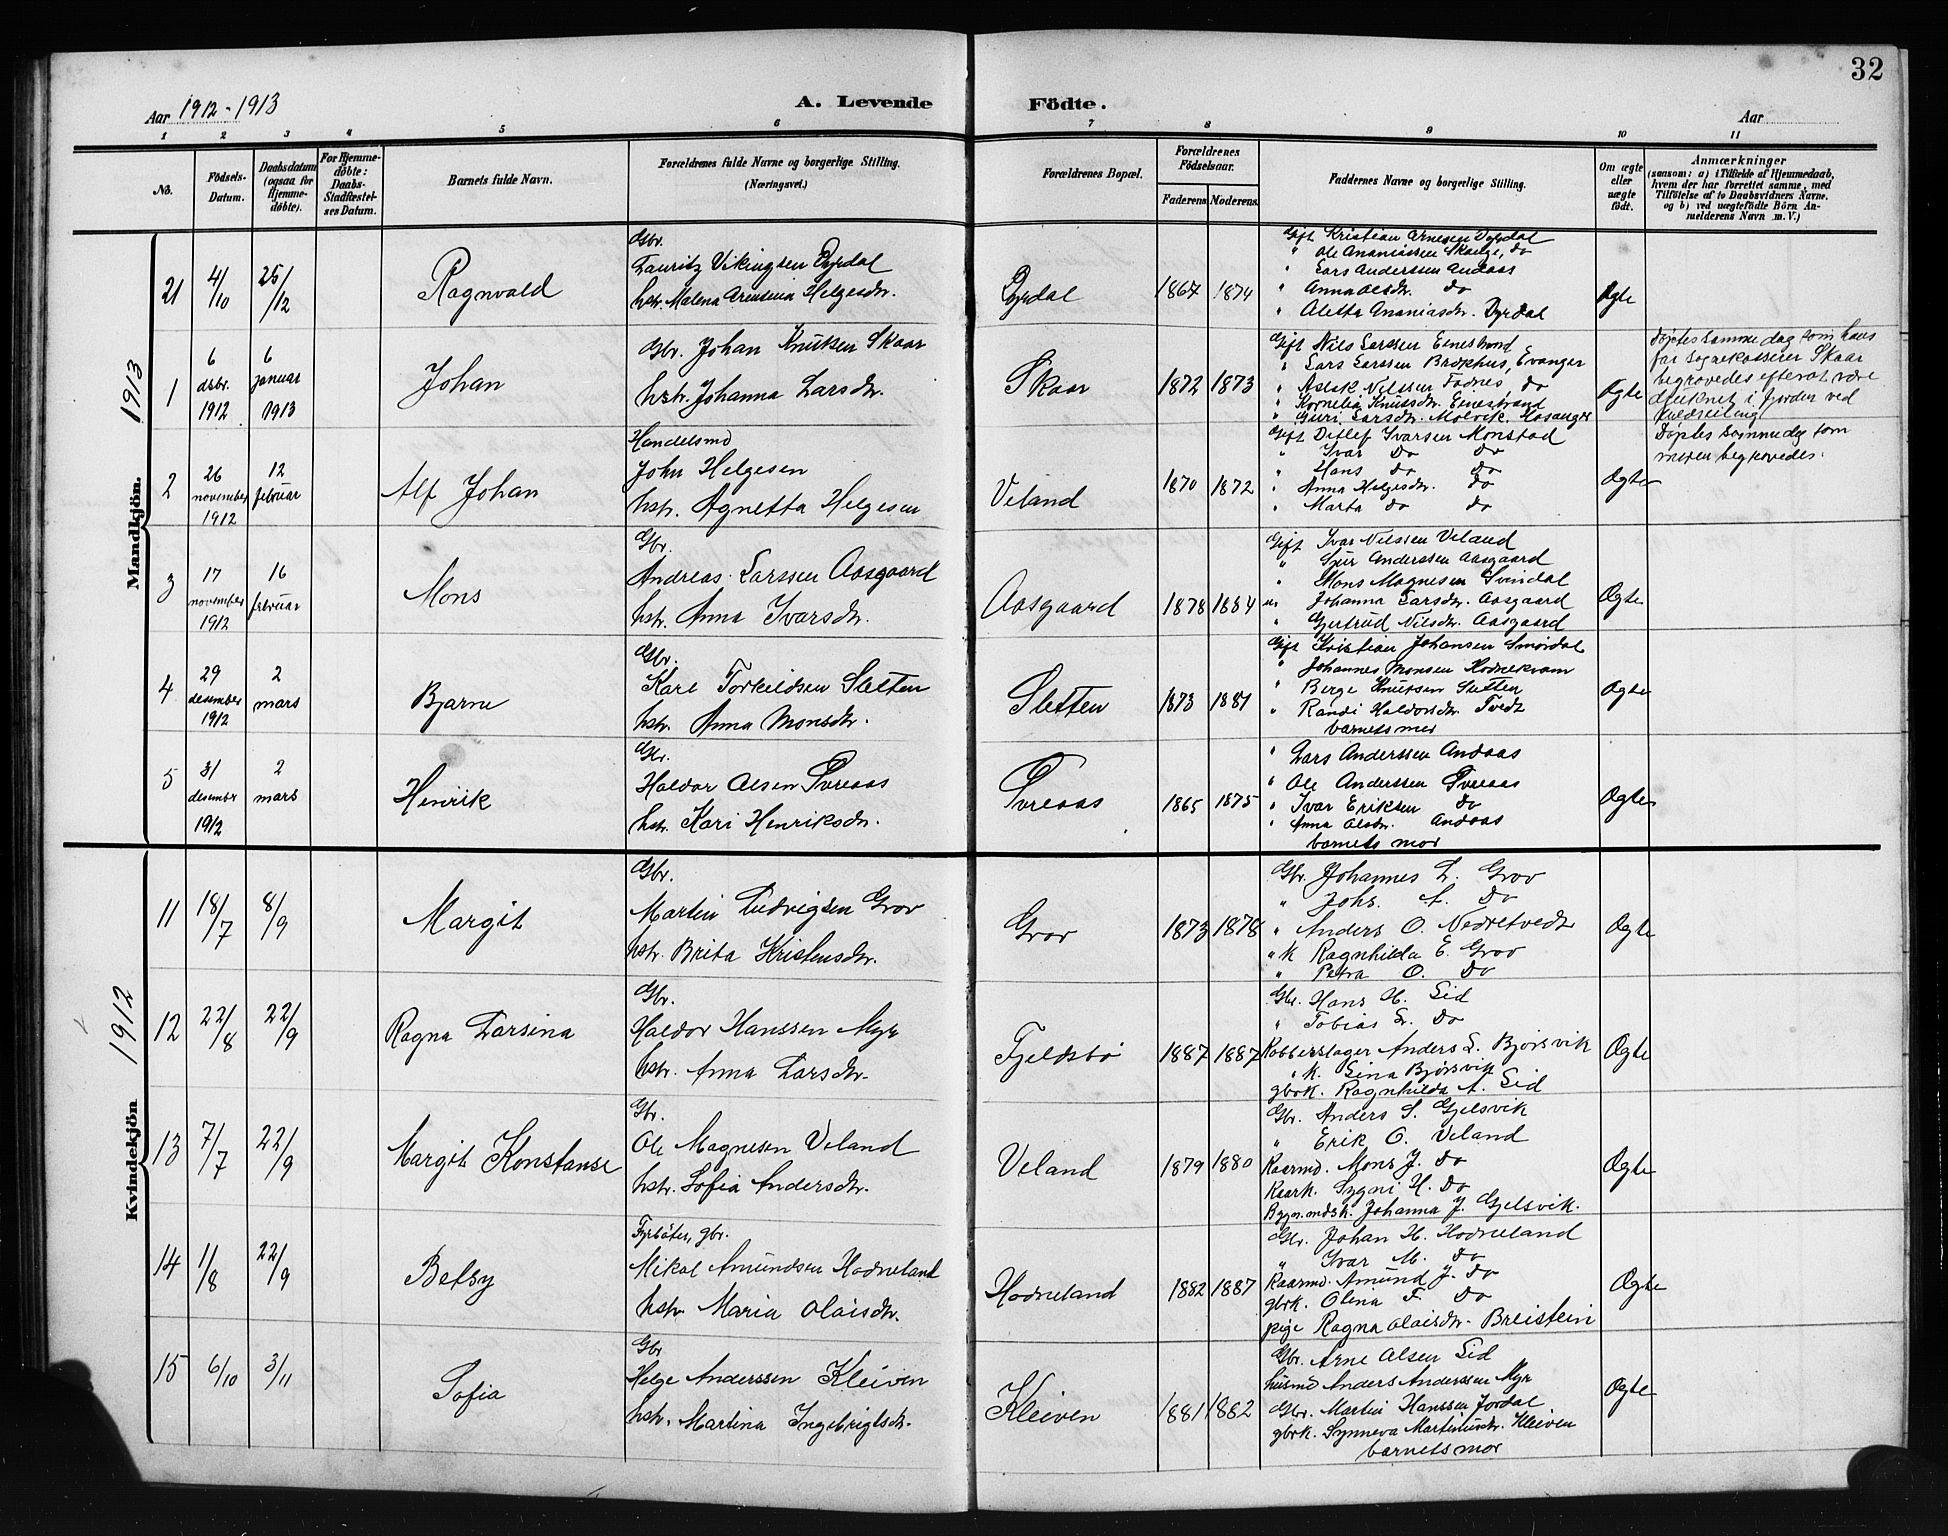 32
Aar 1912-1913 A. Levende Födte. Aar
1 2 3 4 5 6 7 8 9 10 11
No.
Födsels-Datum.
Daabsdatum (ogsaa for Hjemme-döbte).
For Hjemme-döbte: Daabs-Stadfæstel-ses Datum.
Barnets fulde Navn.
Forældrenes fulde Navne og borgerlige Stilling.
(Næringsvei.)
Forældrenes Bopæl.
Forældrenes Födselsaar.
Faderens Moderens.
Faddernes Navne og borgerlige Stilling.
Om ægte eller uægte födt.
Anmærkninger
(saasom: a) i Tilfælde af Hjemmedaab,
hvem der har forrettet samme, med
Tilföielse af to Daabsvidners Navne.
og b) ved uægtefödte Börn An-
melderens Navn m. V.)
Mandkjön. 1913
21 4/10 25/12 Ragnvald
Gbr.
Lauritz Vikingsen Dyrdal
hstr. Malena Arentina Helgesdtr.
Dyrdal 1867 1874
Gift Kristian Arnesen Dyrdal
" Ole Ananiassen Skauge, do
" Lars Anderssen Andaas
" Anna Olsdtr. do
" Aletta Ananiasdtr. Dyrdal
Ægte
1 6 dsbr. 1912 6 januar 1913 Johan
Gbr. Johan Knutsen Skaar
hstr. Johanna Larsdtr.
Skaar 1872 1873
Gift Nils Larssen Einestrand
" Lars Larssen Brækhus, Evanger
" Aslak Nilssen Fadnes do
" Kornelia Knutsdtr. Einestrand
" Guri Larsdtr. Molvik. Hosanger
Ægte
Døptes samme dag som hans
far sognekasserer Skaar
begravedes efter at være
druknet i fjorden ved
kuldseiling
2 26 november 1912 12 februar Alf Johan
Handelsmd
John Helgesen
hstr. Agnetta Helgesen
Veland 1870 1872
Gift Ditlef Ivarsen Monstad
" Ivar do do
" Hans do do
" Anna Helgesdtr. do
" Marta do do
Ægte
Døptes samme dag som
moren begravedes.
3 17 november 1912 16 februar Mons
Gbr.
Andreas Larssen Aasgaard
hstr. Anna Ivarsdtr.
Aasgaard 1878 1884
Gift Ivar Nilssen Veland
" Sjur Anderssen Aasgaard
" Mons Magnesen Svindal
" Johanna Larsdtr. Aasgaard
" Gjertrud Nilsdtr. Aasgaard
Ægte
4 29 desember 1912 2 mars Bjarne
Gbr.
Karl Torkildsen Sletten
hstr. Anna Monsdtr.
Sletten 1873 1881
Gift Kristian Johansen Smørdal
" Johannes Monsen Hodnekvam
" Berge Knutsen Sletten
" Randi Haldorsdtr. Tvedt
barnets mor
Ægte
5 31 desember 1912 2 mars Henrik
Gbr.
Haldor Olsen Tvreaas
hstr. Kari Henriksdtr.
Tvreaas 1865 1875
" Lars Anderssen Andaas
" Ole Anderssen Tvreaas
" Ivar Eriksen do
" Anna Olsdtr. Andaas
barnets mor
Ægte
Kvindekjön 1912
11 18/7 8/9 Margit
Gbr.
Martin Ludvigsen Grov
hstr. Brita Kristensdtr.
Grov 1873 1878
Gbr. Johannes L. Grov
" Johs. A. Do
" Anders O. Nedretvedt
" k Ragnhilda E. Grov
" Petra O. Do
Ægte
12 22/8 22/9 Ragna Larsina
Gbr.
Haldor Hanssen Myr
hstr. Anna Larsdtr.
Fjeldsbø 1887 1887
Gbr. Hans H. Eid
" Tobias L. Do
Kobberslager Anders L. Bjørsvik
" k. Lina Bjørsvik
gbrk. Ragnhilda A. Eid
Ægte
13 7/7 22/9 Margit Konstanse
Gbr.
Ole Magnesen Veland
hstr. Sofia Andersdtr.
Veland 1879 1880
Gbr. Anders S. Gjelsvik
" Erik O. Veland
Kaarmd. Mons J. Do
Kaark. Sygni H. Do
Bygn.mdsk. Johanna J. Gjelsvik.
Ægte
14 11/8 22/9 Betsy
Fyrbøter, gbr.
Mikal Amundsen Hodneland
hstr. Maria Olaisdtr.
Hodneland 1882 1887
Gbr. Johan H. Hodneland
" Ivar M. do
Kaarmd. Amund J. Do
gbrk. Olina F. Do
pige Ragna Olaisdtr. Breistein
Ægte
15 6/10 3/11 Sofia
Gbr
Helge Anderssen Kleiven
hstr. Martina Ingebrigtsdtr.
Kleiven 1881 1882
Gbr. Arne Olsen Eid
husmd Anders Anderssen Myr
Gbr. Martin Hanssen Jordal
gbrk. Synneva Martinusdtr. Kleiven
barnets mor
Ægte